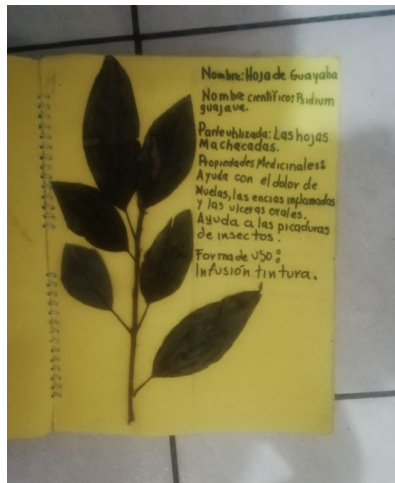 Nombre: Hoja de Guayaba
Nombre científico: Psidium
guajava.
Parte utilizada: Las hojas
Machacadas.
Propiedades Medicinales:
Ayuda con el dolor de
Muelas, las encias inflamadas
y las ulceras orales.
Ayuda a las picaduras
de insectos.
Forma de uso:
Infusión tintura.